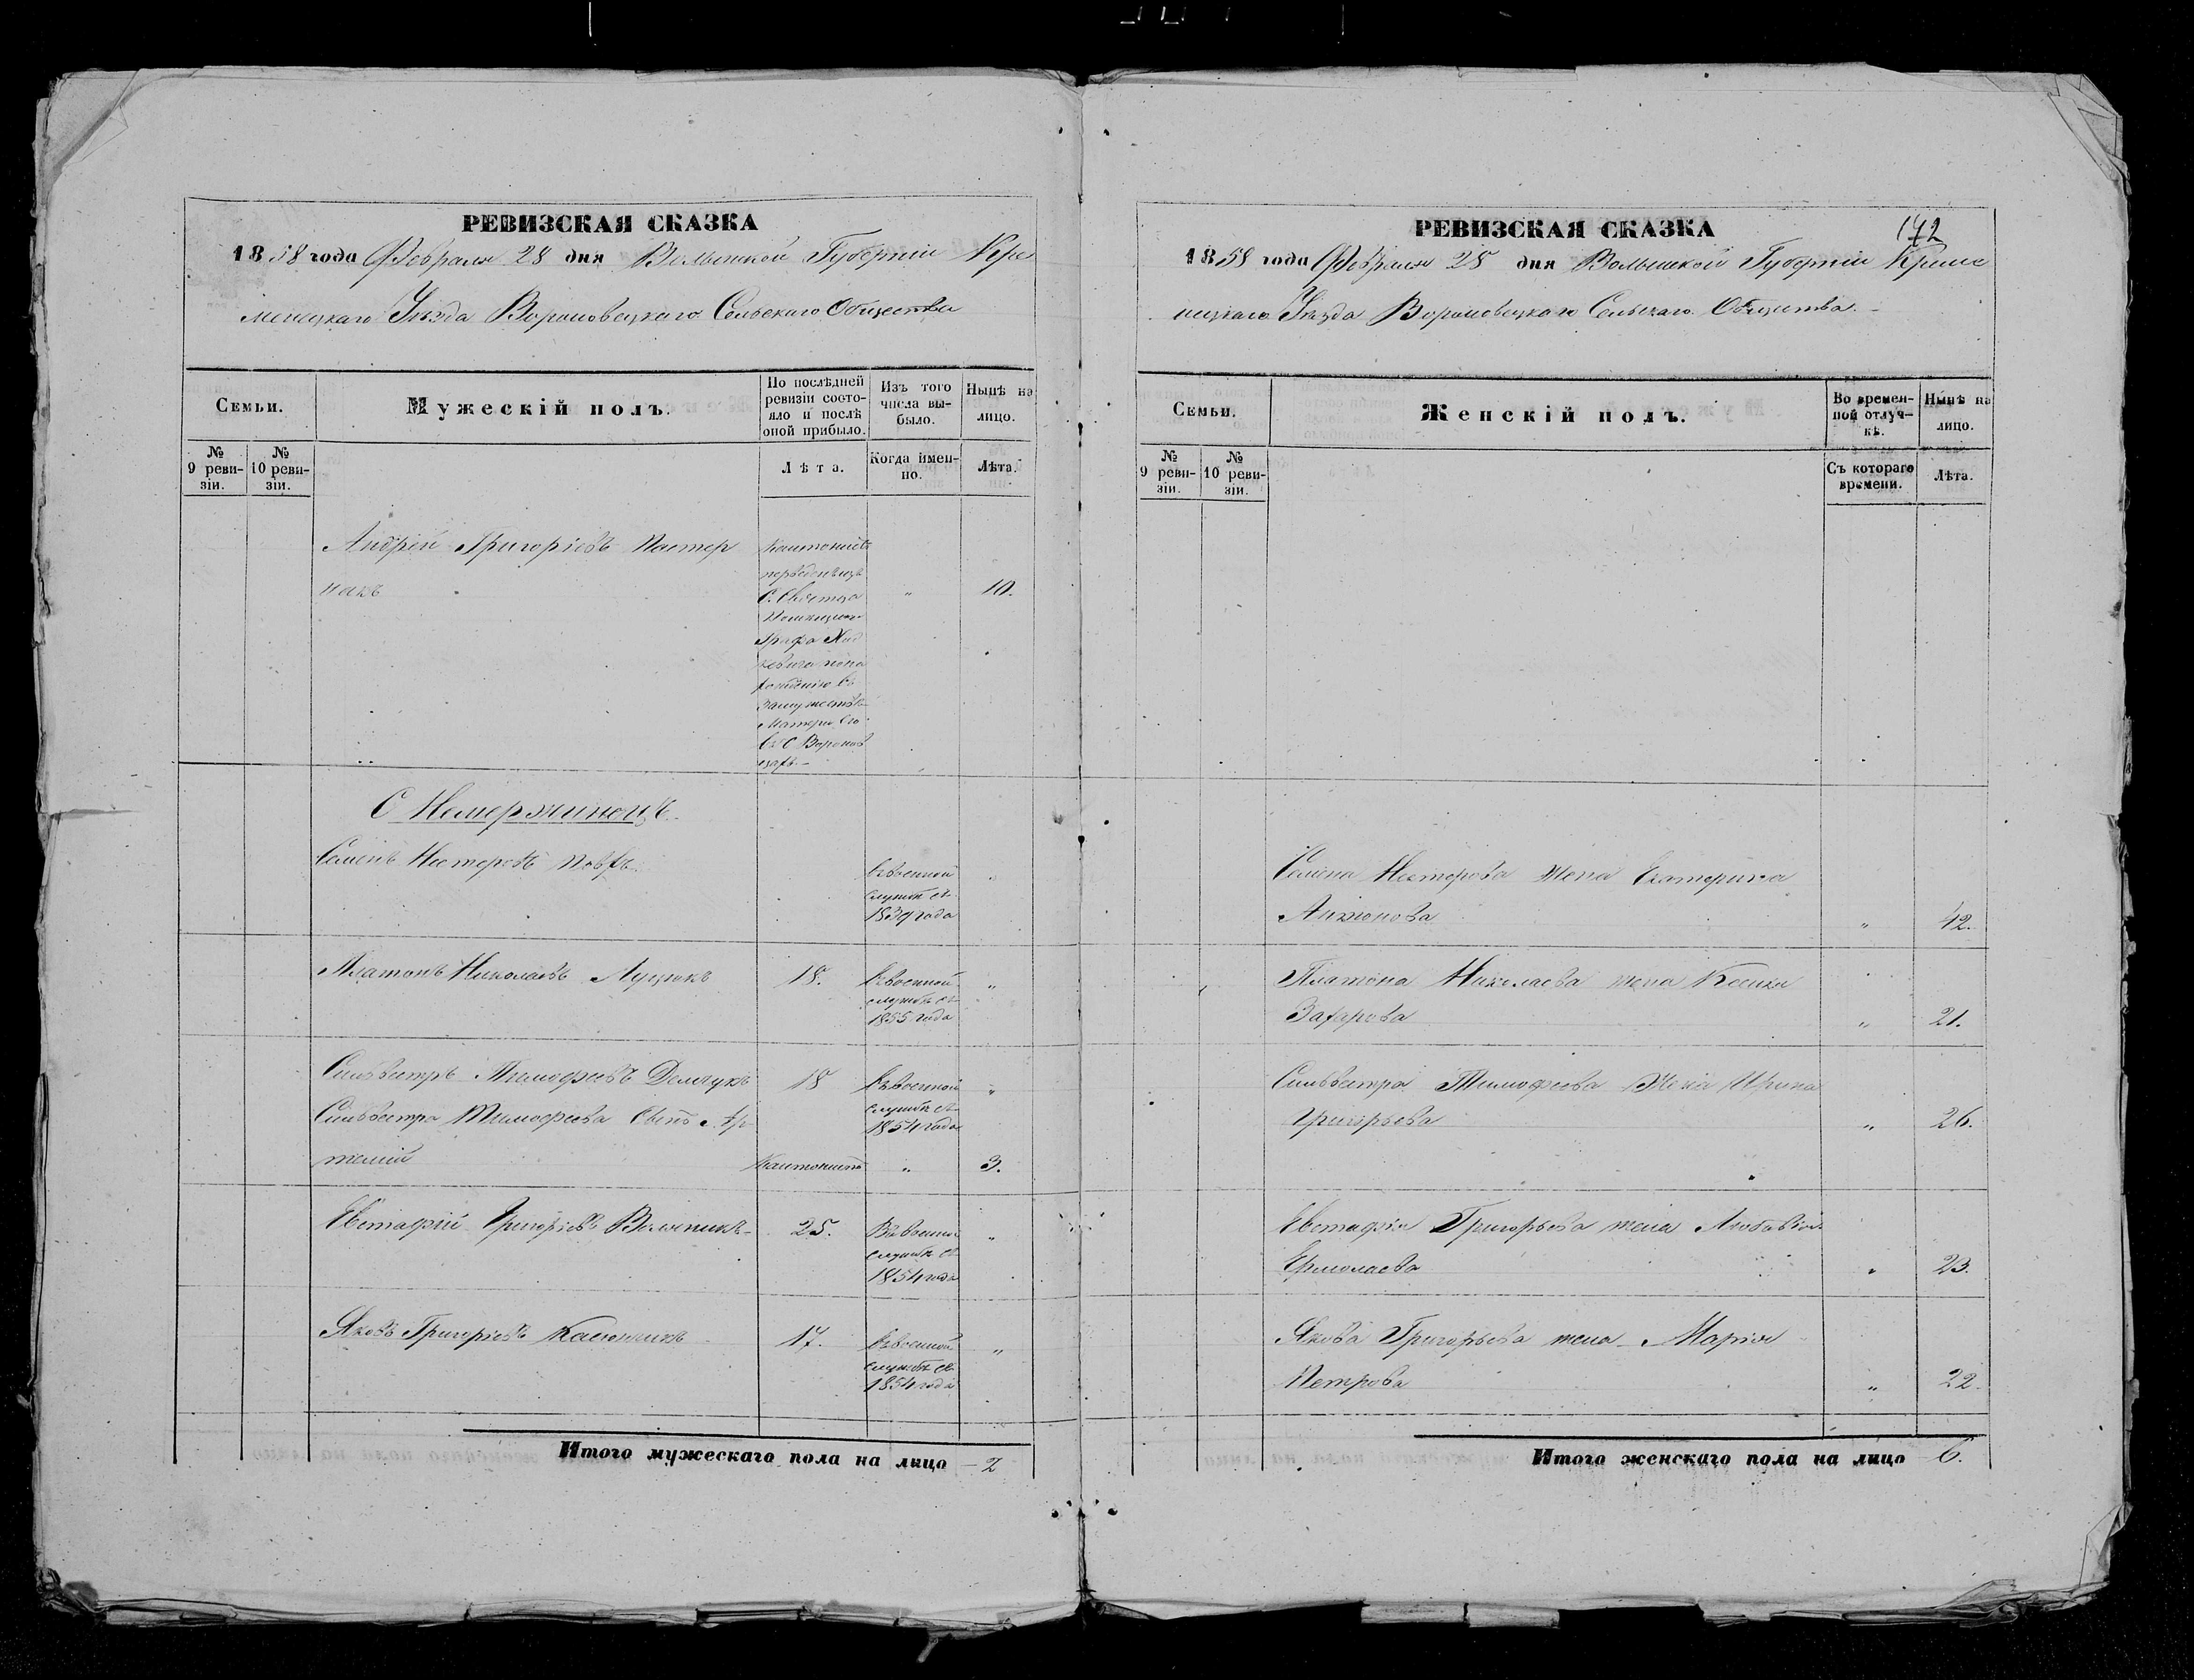 РЕВИЗСКАЯ СКАЗКА
1858 года Февраля 28 дня Волынской Губерніи Кре
менецкаго Уѣзда Вороновецкаго Сельскаго Общества
Семьи.
Мужескій полъ.
По послѣдней ревизіи состо-
яло и послѣ
оной прибыло.
Изъ того
числа вы-
было.
Нынѣ на
лицо.
№
9 реви-
зіи.
№
10 реви-
зіи.
Лѣта.
Когда имен-
но.
Лѣта.
Андрей Григоріевъ Пастер
накъ
Кантонистъ
С.
Графа Ход
кевича
Матери его
въ С
" 10.
С
Семенъ Нестеровъ
въ военной
службѣ съ
1839 года
Платонъ Николаевъ Луцюкъ 18. въ военной "
службѣ съ
1855 года
Сильвестръ Тимофеевъ Демчукъ 18 въ военной "
Сильвестра Тимофеева сынъ Ар службѣ съ
1854 года
темій Кантонистъ " 3.
Евстафій Григоріевъ 25. Въ военной "
службѣ съ
1854 года
Яковъ Григоріевъ 17. въ военной "
службѣ съ
1854 года
Итого мужескаго пола на лицо 2
172
РЕВИЗСКАЯ СКАЗКА
1858 года Февраля 28 дня Волынской Губерніи Креме
нецкаго Уѣзда Вороновецкаго Сельскаго Общества.
Семьи.
Женскій полъ.
Во времен-
ной отлуч-
кѣ.
Нынѣ на
лицо.
№
9 реви-
зіи.
№
10 реви-
зіи.
Съ котораго
времени.
Лѣта.
Семена Нестерова жена Екатерина
" 42.
Платона Николаева жена Ксенія
Захарова " 21.
Сильвестра Тимофеева жена Ирина
Григорьева " 26.
Евстафія Григорьева жена
Ермолаева " 23.
Якова Григорьева жена Марія
Петрова " 22.
Итого женскаго пола на лицо 6.